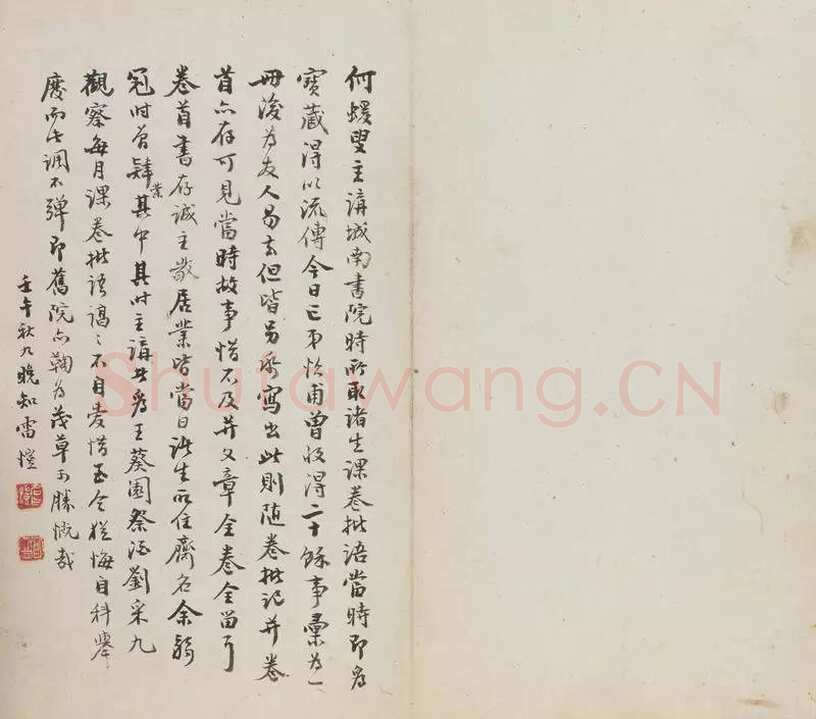 何蝯叟主講城南書院時所取諸生課卷批語當時即為
寶藏得以流傳今日亡弟怡甫曾收得二十餘事彙為一
冊後為友人易去但皆另紙寫出此則隨卷批記并卷
首亦存可見當時故事惜不及并文章全卷全留耳
卷首書存誠主敬居業皆當日諸生所住齋名余弱
冠時曾肄業其中其時主講者為王葵園祭酒劉采九
觀察每月課卷批語謞謞不自愛惜至今猶悔自科舉
廢而此調不彈即舊院亦鞠為茂草可勝慨哉
壬午秋九晚知雷愷
Shufawang.CN